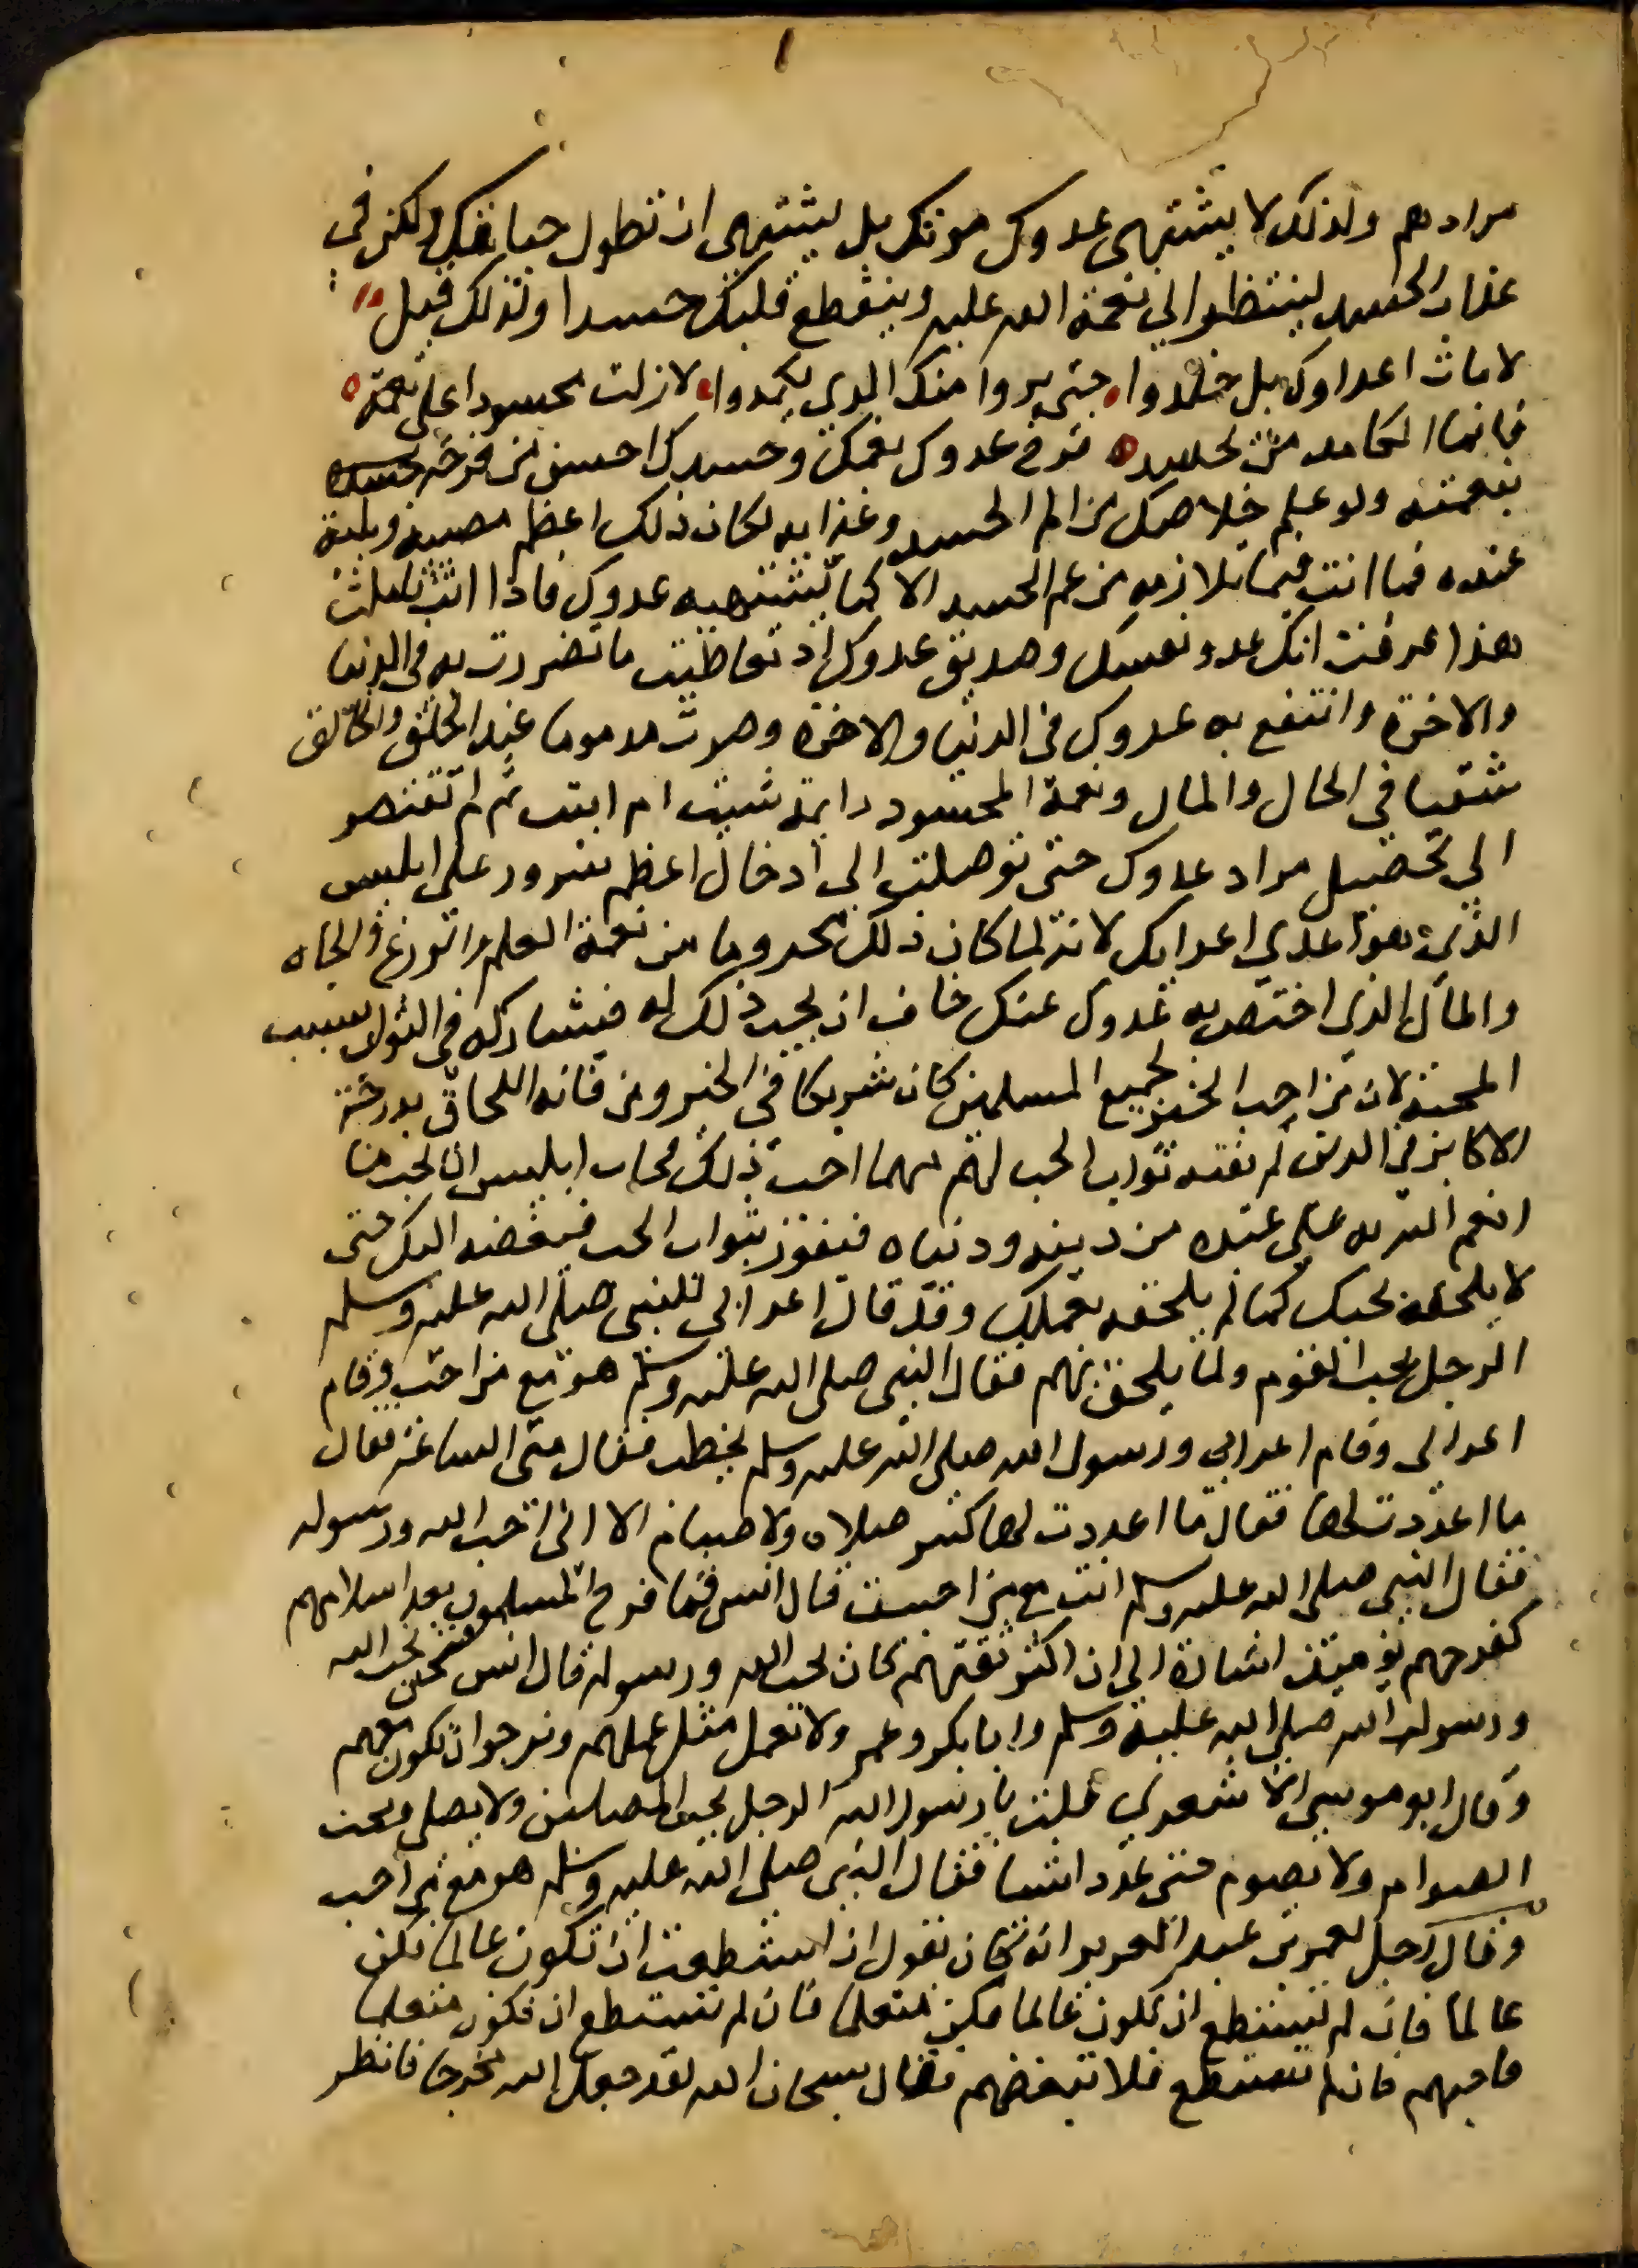 مرادهم ولذلك لا يشتهى عدوك موتك بل يشتهى ان تطول حياتك ولكن في
عذاب الحسد لينتظر الي نعمة الله عليه وينقطع قلبك حسدا ولذلك قيل
لا مات اعداوك بل خلدوا حتى يروا منك الذي يكمدوا لا زلت محسودا على نعمة
فانما الكامل من يحسد فرح عدوك بغمك وحسدك احسن من فرحه
بنعمته ولو علم خلاصك من الم الحسد وعذابه لكان ذلك اعظم مصيبة وبلية
عنده فما انت فيما تلازمه من غم الحسد الا كما يشتهيه عدوك فاذا انت تاملت
هذا عرفت انك عدو نفسك وصديق عدوك اذ تعاطيت ما تضررت به في الدنيا
والاخرة وانتفع به عدوك في الدنيا والاخرة وصرت مذموما عند الخلق والخالق
شقيا في الحال والمال ونعمة المحسود دايمة شيت ام ابيت ثم لم تقتصر
الي تحصيل مراد عدوك حتى توصلت الى ادخال اعظم سرور على ابليس
الذي هو اعدي اعدايك لانه لما كان ذلك محروما من نعمة العلم والورع والجاه
والمال الذي اختص به عدوك عنك خاف ان يحب ذلك له فيشاركه في الثواب بسبب
المحبة لان من احب الخير لجميع المسلمين كان شريكا في الخير ومن فاته اللحاق بدرجة
الاكابر في الدين لم يفته ثواب الحب لهم مهما احب ذلك فخاف ابليس ان تحب ما
انعم الله به على عبده من دينه ودنياه فيفوز بثواب الحب فيبغضه اليك حتى
لا يلحقه بحبك كما لم يلحقه بعملك وقد قال اعرابي للنبي صلى الله عليه وسلم
الرجل يحب القوم ولما يلحق بهم فقال النبي صلى الله عليه وسلم هو مع من احب وقام
اعرابى وقام اعرابي ورسول الله صلى الله عليه وسلم يخطب فقال متى الساعة فقال
ما اعددت لها فقال ما اعددت لها كثير صلاه ولا صيام الا انى احب الله ورسوله
فقال النبي صلى الله عليه وسلم انت مع من احببت قال انس فما فرح المسلمون بعد اسلامهم
كفرحهم يوميذ اشارة الي ان اكثر ثقتهم كان بحب الله ورسوله قال انس فنحن نحب الله
ورسوله صلى الله عليه وسلم وابا بكر وعمر ولا نعمل مثل عملهم ونرجو ان نكون معهم
وقال ابو موسى الاشعري قلت يا رسول الله الرجل يحب المصلين ولا يصلى ويحب
الصوام ولا يصوم حتى عدد اشيا فقال النبي صلى الله عليه وسلم هو مع من احب
وقال رجل لعمر بن عبد العزيز انه كان يقول ان استطعت ان تكون عالما فكن
عالما فان لم تستطع ان تكون عالما فكن متعلما فان لم تستطع ان تكون متعلما
فاحبهم فان لم تستطع فلا تبغضهم فقال سبحان الله لقد جعل الله مخرجا فانظر